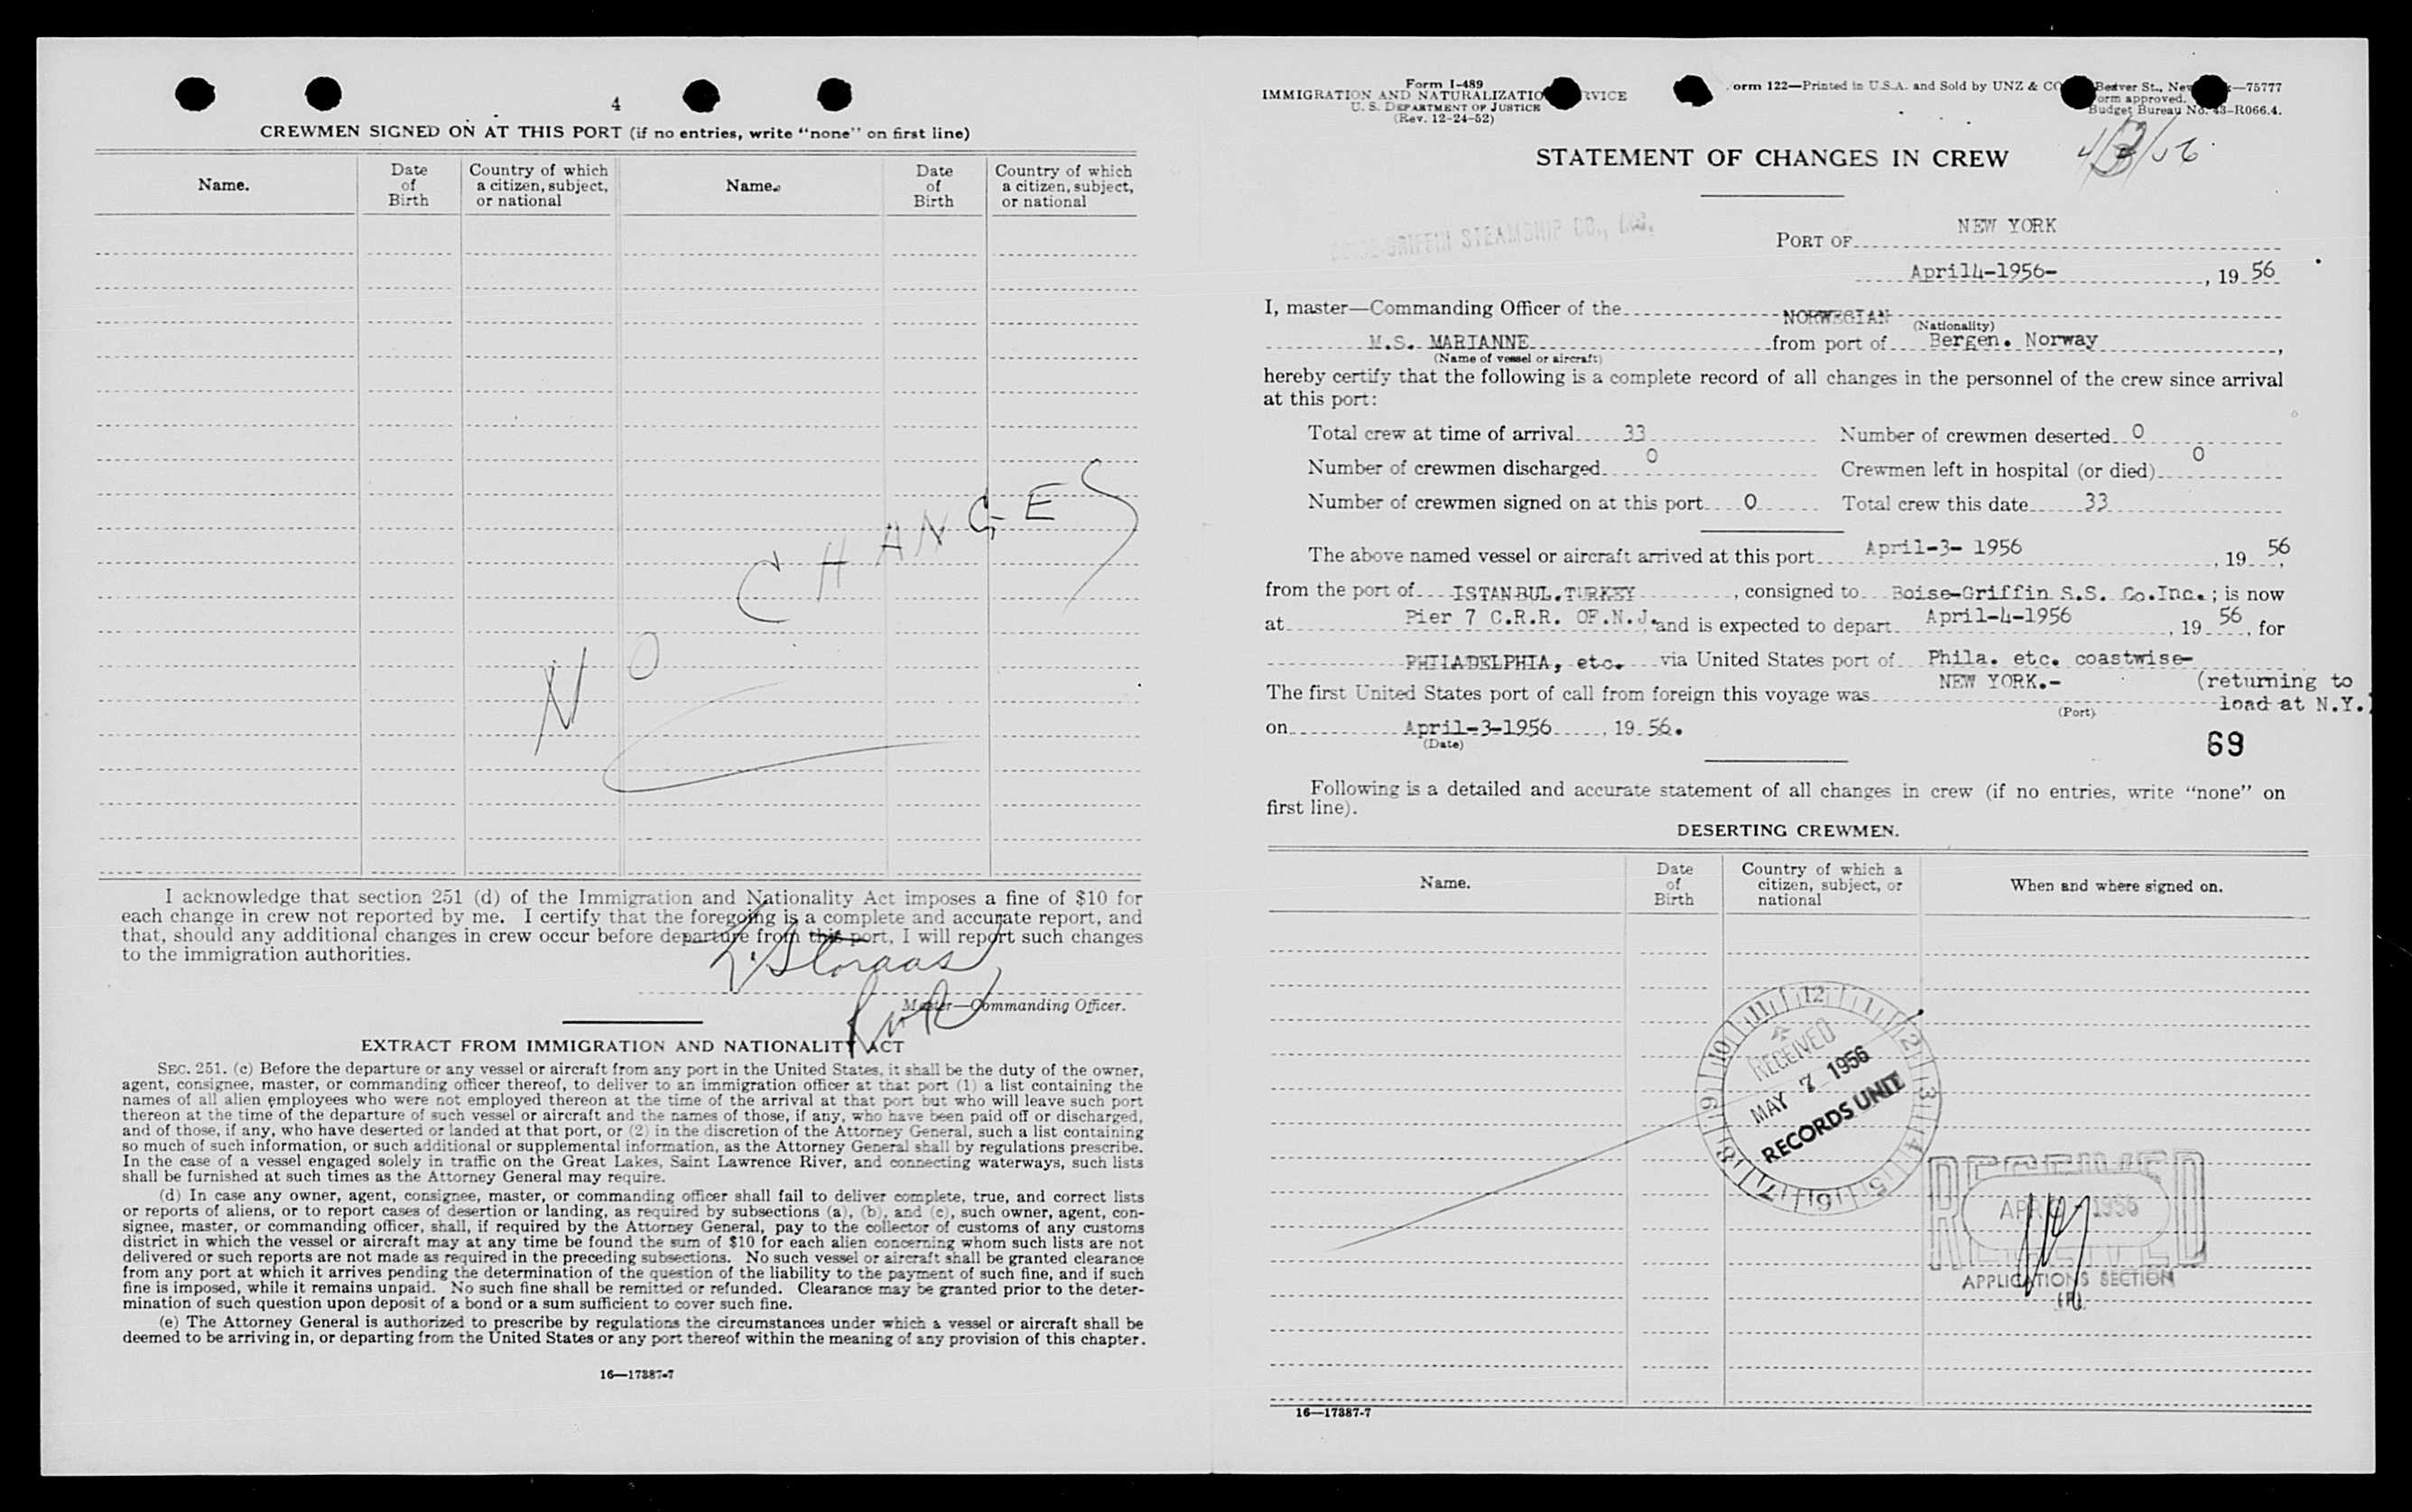 4
CREWMEN SIGNED ON AT THIS PORT (if no entries, write "none" on first line)
Name. Date of Birth Country of which a citizen, subject, or national Name. Date of Birth Country of which a citizen, subject, or national
NO CHANGES
I acknowledge that section 251 (d) of the Immigration and Nationality Act imposes a fine of $10 for
each change in crew not reported by me. I certify that the foregoing is a complete and accurate report, and
that, should any additional changes in crew occur before departure from this port, I will report such changes
to the immigration authorities.
Master—Commanding Officer.
EXTRACT FROM IMMIGRATION AND NATIONALITY ACT
SEC. 251. (c) Before the departure or any vessel or aircraft from any port in the United States, it shall be the duty of the owner,
agent, consignee, master, or commanding officer thereof, to deliver to an immigration officer at that port (1) a list containing the
names of all alien employees who were not employed thereon at the time of the arrival at that port but who will leave such port
thereon at the time of the departure of such vessel or aircraft and the names of those, if any, who have been paid off or discharged,
and of those, if any, who have deserted or landed at that port, or (2) in the discretion of the Attorney General, such a list containing
so much of such information, or such additional or supplemental information, as the Attorney General shall by regulations prescribe.
In the case of a vessel engaged solely in traffic on the Great Lakes, Saint Lawrence River, and connecting waterways, such lists
shall be furnished at such times as the Attorney General may require.
(d) In case any owner, agent, consignee, master, or commanding officer shall fail to deliver complete, true, and correct lists
or reports of aliens, or to report cases of desertion or landing, as required by subsections (a), (b), and (c), such owner, agent, con-
signee, master, or commanding officer, shall, if required by the Attorney General, pay to the collector of customs of any customs
district in which the vessel or aircraft may at any time be found the sum of $10 for each alien concerning whom such lists are not
delivered or such reports are not made as required in the preceding subsections. No such vessel or aircraft shall be granted clearance
from any port at which it arrives pending the determination of the question of the liability to the payment of such fine, and if such
fine is imposed, while it remains unpaid. No such fine shall be remitted or refunded. Clearance may be granted prior to the deter-
mination of such question upon deposit of a bond or a sum sufficient to cover such fine.
(e) The Attorney General is authorized to prescribe by regulations the circumstances under which a vessel or aircraft shall be
deemed to be arriving in, or departing from the United States or any port thereof within the meaning of any provision of this chapter.
16—17387-7
Form I-489
IMMIGRATION AND NATURALIZATIO RVICE
U. S. DEPARTMENT OF JUSTICE
(Rev. 12-24-52)
orm 122—Printed in U.S.A. and Sold by UNZ & CO Beaver St., New —75777
orm approved.
Budget Bureau No. 43-R066.4.
STATEMENT OF CHANGES IN CREW
GRIFFIN STEAMSHIP CO., INC.
PORT OF NEW YORK
April4-1956-, 19 56
I, master—Commanding Officer of the NORWEGIAN
(Nationality)
M.S. MARIANNE from port of Bergen. Norway,
(Name of vessel or aircraft)
hereby certify that the following is a complete record of all changes in the personnel of the crew since arrival
at this port:
Total crew at time of arrival 33 Number of crewmen deserted 0
Number of crewmen discharged 0 Crewmen left in hospital (or died) 0
Number of crewmen signed on at this port 0 Total crew this date 33
The above named vessel or aircraft arrived at this port April-3- 1956, 19 56,
from the port of ISTANBUL.TURKEY, consigned to Boise-Griffin S.S. Co.Inc.; is now
at Pier 7 C.R.R. OF.N.J. and is expected to depart April-4-1956, 19 56, for
PHILADELPHIA, etc. via United States port of Phila. etc. coastwise-
The first United States port of call from foreign this voyage was NEW YORK.- (returning to
load at N.Y.)
(Port)
on April-3-1956, 19 56.
(Date)
69
Following is a detailed and accurate statement of all changes in crew (if no entries, write "none" on
first line).
DESERTING CREWMEN.
Name. Date of Birth Country of which a citizen, subject, or national When and where signed on.
12 1 2 3 4 5 6 7 8 9 10 11
RECEIVED
MAY 7 1956
RECORDS UNIT
RECEIVED
APR 1956
RECEIVED
APPLICATIONS SECTION
16—17387-7